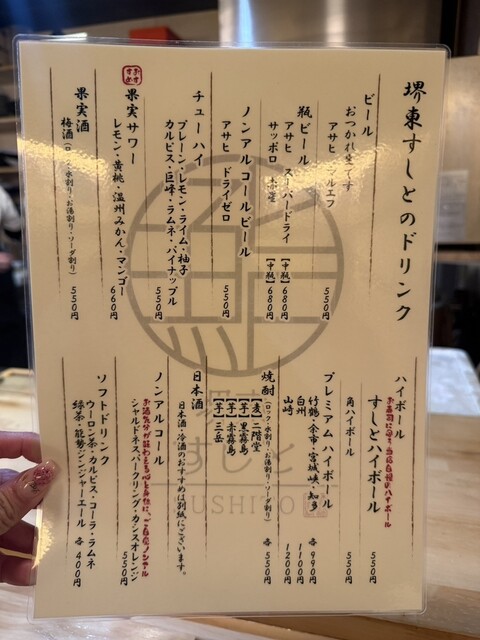 堺東すしとのドリンク
ビール
おつかれ生です
アサヒ マルエフ 550円
瓶ビール
アサヒ スーパードライ 【中瓶】680円
サッポロ 赤星 【中瓶】680円
ノンアルコールビール
アサヒ ドライゼロ 550円
チューハイ
プレーン・レモン・ライム・柚子
カルピス・巨峰・ラムネ・パイナップル 550円
おすすめ
果実サワー
レモン・黄桃・温州みかん・マンゴー 660円
果実酒
梅酒(ロック・水割り・お湯割り・ソーダ割り) 550円
ハイボール
お寿司に合う当店自慢のハイボール
すしとハイボール 550円
角ハイボール 550円
プレミアムハイボール
竹鶴・余市・宮城峡・知多 各990円
白州 1100円
山崎 1200円
焼酎(ロック・水割り・お湯割り・ソーダ割り) 各550円
【麦】二階堂
【芋】黒霧島
【芋】赤霧島
【芋】三岳
日本酒
日本酒、冷酒のおすすめは別紙にございます。
ノンアルコール
お酒気分が味わえる心と身体に、ご自愛ノンアル
シャルドネスパークリング・カシスオレンジ 550円
ソフトドリンク
ウーロン茶・カルピス・コーラ・ラムネ
緑茶・能勢ジンジャーエール 各400円
すしと
SUSHITO